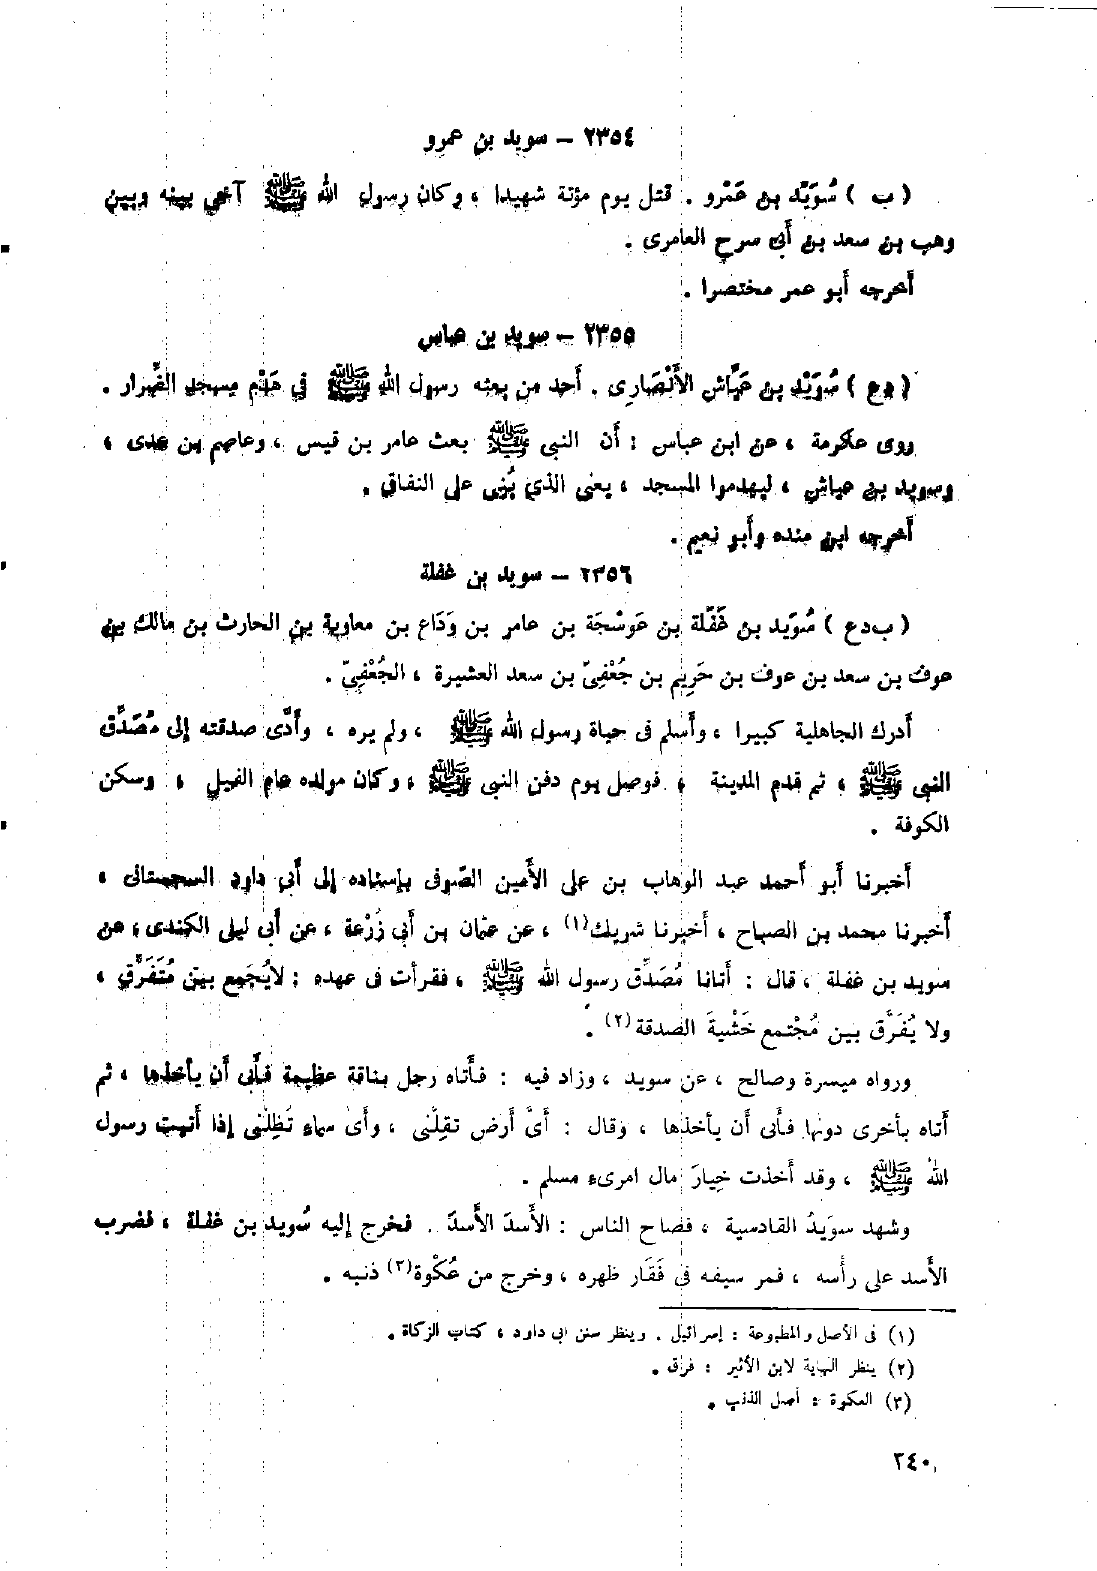 ٢٣٥٤ – سويد بن عمرو
( ب ) سُوَيْد بن عَمْرو . قتل يوم مؤتة شهيدا ، وكان رسول الله ﷺ آخى بينه وبين
وهب بن سعد بن أَبى سرح العامرى .
أخرجه أبو عمر مختصرا .
٢٣٥٥ – سويد بن عياش
( دع ) سُوَيْد بن عَيَّاش الأَنْصَارِى . أَحد من بعثه رسول الله ﷺ فى هَدْم مسجد الضِّرار .
روى عكرمة ، عن ابن عباس : أَن النبى ﷺ بعث عامر بن قيس ، وعاصم بن عدى ،
وسويد بن عياش ، ليهدموا المسجد ، يعنى الذى بُنِى على النفاق .
أخرجه ابن منده وأَبو نعيم .
٢٣٥٦ – سويد بن غفلة
( ب د ع ) سُوَيد بن غَفَلة بن عَوْسَجَة بن عامر بن وَدَاع بن معاوية بن الحارث بن مالك بن
عوف بن سعد بن عوف بن حَرِيم بن جُعْفِىّ بن سعد العشيرة ، الجُعْفِىّ .
أدرك الجاهلية كبيرا ، وأَسلم فى حياة رسول الله ﷺ ، ولم يره ، وأَدَّى صدقته إلى مُصَدِّق
النبى ﷺ ، ثم قدم المدينة ، فوصل يوم دفن النبى ﷺ ، وكان مولده عام الفيل ، وسكن
الكوفة .
أخبرنا أبو أَحمد عبد الوهاب بن على الأَمين الصّوفى بإسناده إلى أَبى داود السجستانى ،
أَخبرنا محمد بن الصباح ، أَخبرنا شريك(١) ، عن عثمان بن أَبى زُرْعة ، عن أَبى ليلى الكندى ، عن
سويد بن غفلة ، قال : أَتانا مُصَدِّق رسول الله ﷺ ، فقرأت فى عهده : لايُجَمع بين مُتَفَرَّق ،
ولا يُفَرَّق بين مُجْتمع خَشْيةَ الصدقة(٢) .
ورواه ميسرة وصالح ، عن سويد ، وزاد فيه : فأَتاه رجل بناقة عظيمة فأَبى أَن يأخذها ، ثم
أَتاه بأخرى دونها فأبى أن يأخذها ، وقال : أَىّ أَرض تقِلّنى ، وأَى سماء تَظِلّنى إذا أَتيت رسول
اللهُ ﷺ ، وقد أَخذت خِيارَ مال امرىء مسلم .
وشهد سوَيدُ القادسية ، فصاح الناس : الأَسدَ الأَسدَ . فخرج إليه سُويد بن غفلة ، فضرب
الأَسد على رأسه ، فمر سيفه فى فَقَار ظهره ، وخرج من عُكْوة(٣) ذنبه .
(١) فى الأصل والمطبوعة : إسرائيل . وينظر سنن ابى داود ، كتاب الزكاة .
(٢) ينظر النهاية لابن الأثير : فرق .
(٣) العكوة : أصل الذنب .
٢٤٠